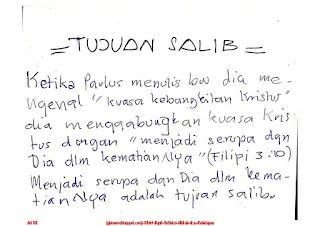 = TUJUAN SALIB =
Ketika Paulus menulis bw dia me-
ngenal "kuasa kebangkitan Kristus"
dia menggabungkan kuasa Kris
tus dengan "menjadi serupa dgn
Dia dlm kematianNya" (Filipi 3:10)
Menjadi serupa dgn Dia dlm kema-
tianNya adalah tujuan salib.